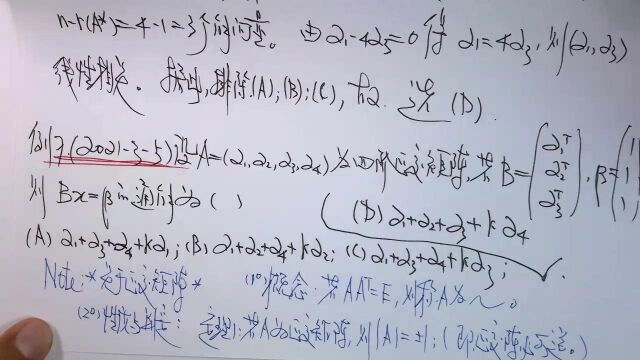 n-r(A*)=4-1=3个向量. 由α₁-4α₃=0得 α₁=4α₃, 则(α₁,α₃)
线性相关. 排除(A);(B);(C), 故 选 (D).
例7(2021-3-5)设A=(α₁,α₂,α₃,α₄)为四阶正交矩阵,若B=(α₁ᵀ α₂ᵀ α₃ᵀ), β=(1 1 1
则 Bx=β的通解为( )
(D) α₁+α₂+α₃+kα₄
(A) α₂+α₃+α₄+kα₁; (B) α₁+α₃+α₄+kα₂; (C) α₁+α₂+α₄+kα₃;
Note: *关于正交矩阵* (1°)概念:若AAᵀ=E,则称A为~。
(2°)性质与判定: 定理1:若A为正交矩阵,则|A|=±1;(即正交阵必可逆。)